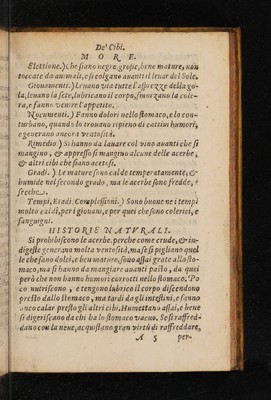 De' Cibi.
MORE.
Elettione.) che siano negre, grosse, bene mature, non
toccate da animali, e si colgano avanti il levar del Sole.
Giovamenti.) Levano via tutte l'asprezze della go-
la, levano la sete, lubricano il corpo, smorzano la cole-
ra, e fanno venire l'appetito.
Nocumenti.) Fanno dolori nello stomaco, e lo con-
turbano, quando lo trovano ripieno di cattivi humori,
e generano ancora ventosità.
Rimedio) Si hanno da lavare col vino avanti che si
mangino, & appresso si mangino alcune delle acerbe,
& altri cibi che siano acetosi.
Gradi.) Le mature sono calde temperatamente, &
humide nel secondo grado, ma le acerbe sono fredde, e
secche.
Tempi, Etadi, Complessioni.) Sono buone ne i tempi
molto caldi, per i giovani, e per quei che sono colerici, e
sanguigni.
HISTORIE NATURALI.
Si prohibiscono le acerbe, perche come crude, & in-
digeste generano molta ventosità, ma se si pigliano quel
le che sono dolci, e ben mature, sono assai grate allo sto-
maco, ma si hanno da mangiare avanti pasto, da quei
però che non hanno humori corrotti nello stomaco. Po
co nutriscono, e tengono lubrico il corpo discendono
presto dallo stomaco, ma tardi dagli intestini, e fanno
anco calar presto gli altri cibi. Humettano assai, e bene
si digeriscano da chi ha lo stomaco vacuo. Se si raffred-
dano con la neve, acquistano gran virtù di raffreddare,
A 5 per-